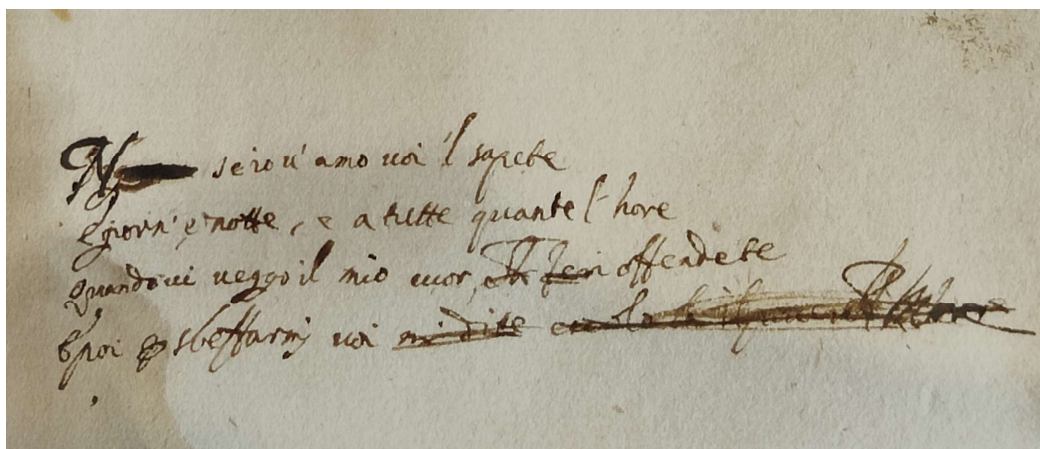 N se io v' amo voi 'l sapete
E giorn' e notte, e a tutte quante l' hore
Quando vi veggo il mio cuor offendete
E poi p sbeffarmj voi mi dite